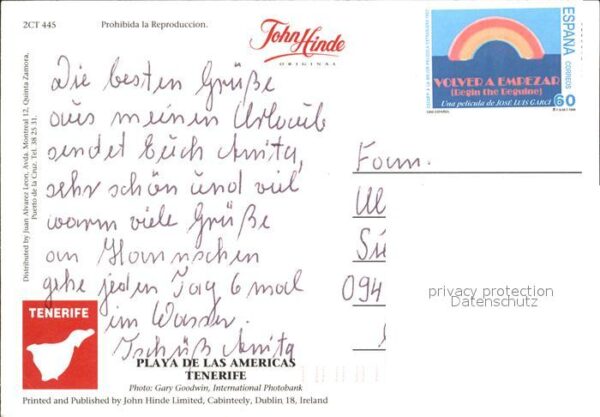 2CT 445 Prohibida la Reproduccion.
John Hinde
ORIGINAL
ESPAÑA
CORREOS
VOLVER A EMPEZAR
(Begin the Beguine)
Una película de JOSÉ LUIS GARCI
60
Distributed by Juan Alvarez Leon, Avda. Montreal 12, Quinta Zamora,
Puerto de la Cruz. Tel. 38 25 31.
Die besten Grüße
aus meinen Urlaub
sendet Euch Anita,
sehr schön und viel
warm viele Grüße
an Hannschen
gehe jeden Tag 6 mal
im Wasser.
Tschüß Anita
Fam.
Ul
Sie
094
privacy protection
Datenschutz
TENERIFE
PLAYA DE LAS AMERICAS
TENERIFE
Photo: Gary Goodwin, International Photobank
Printed and Published by John Hinde Limited, Cabinteely, Dublin 18, Ireland